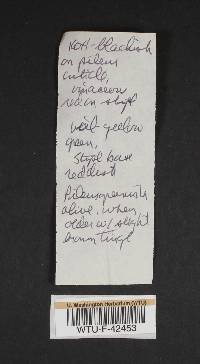 KOH - blackish
on pileus
cuticle,
vinaceous
red in stipe
veil yellow
green,
stipe base
reddish
Pileus greenish
olive, when
older w/ slight
brown tinge
U. Washington Herbarium (WTU)
WTU-F-42453